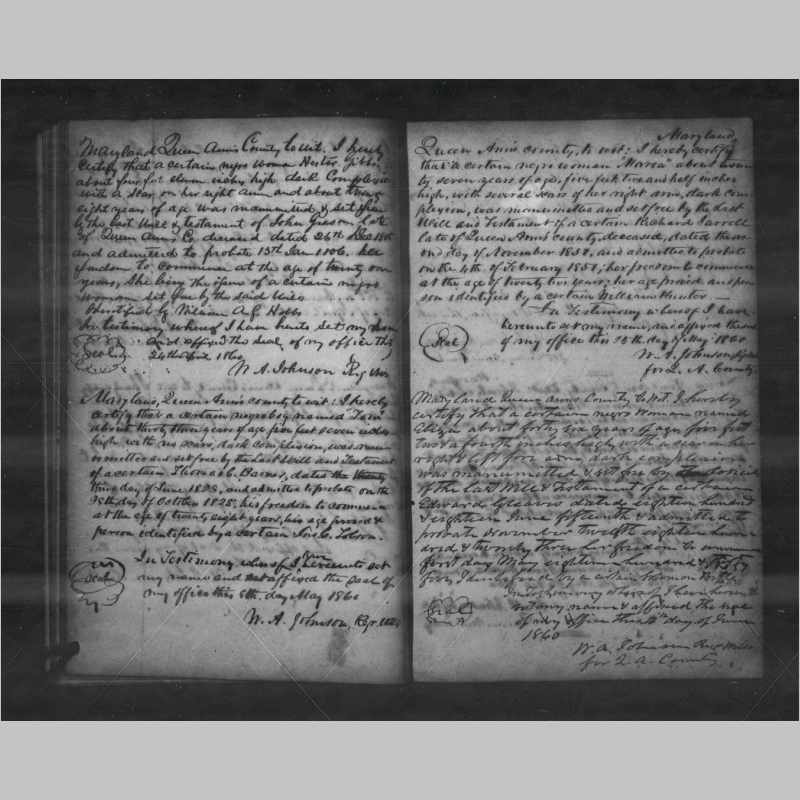 Maryland Queen Ann's County to wit. I hereby
certify that a certain negro woman Hester Gibbs
about four feet eleven inches high dark Complexion
with a scar on her right arm and about twenty
eight years of age was manumitted & set free
by the last Will & testament of John late
of Queen Ann's Co. deceased dated 26th Dec
and admitted to probate 15th Jan 1806. her
freedom to commence at the age of twenty one
years, She being the of a certain negro
woman set free by the said Will
identified by William A.G. Hobbs
In testimony whereof I have hereto set my
and affixed the seal of my office this
Seal 24th April 1860
W. A. Johnson Reg Wills
Maryland, Queen Ann's county to wit: I hereby
certify that a certain negro boy named "Tom"
about thirty three years of age five feet seven inches
high, with no scars, dark complexion, was manu
mitted and set free by the last Will and Testament
of a certain Thomas C. Barnes, dated the twenty
third day of June 1825, and admitted to probate on the
day of October 1825, his freedom to commence
at the age of twenty eight years, his age proved &
person identified by a certain
In Testimony whereof I have hereunto set
Seal my name and affixed the seal of
my office this 8th day May 1860
W. A. Johnson, Regr. Wills
Maryland,
Queen Ann's county, to wit: I hereby certify
that a certain negro woman "Maria" about twen
ty seven years of age, five feet two and half inches
high, with several scars of her right arm, dark com
plexion, was manumitted and set free by the last
Will and Testament of a certain Richard Jarroll
late of Queen Ann's county, deceased, dated the
ond day of November 1850, and admitted to probate
on the 4th of February 1851, her freedom to commence
at the age of twenty two years; her age proved and per
son identified by a certain William
In Testimony whereof I have
hereunto set my name and affixed the seal
Seal of my office this 15th day of May 1860
W. A. Johnson
for Q. A. County
Maryland Queen Anns County to Wit. I hereby
certify that a certain negro Woman named
Eliza about forty six years of age, five feet
two & a fourth inches high, with a scar on her
right & left fore arm dark complexion
was manumitted & set free by
of the last Will & Testament of a certain
Edward dated eighteen hundred
& eighteen June fifteenth & admitted to
probate November twelfth eighteen hun
dred & twenty three her freedom to commence
first day May eighteen hundred & fifty
identified by a certain
In testimony whereof I have hereunto
Seal set my name & affixed the seal
of my office this day of June
1860
W. A. Johnson Reg Wills
for Q. A. County